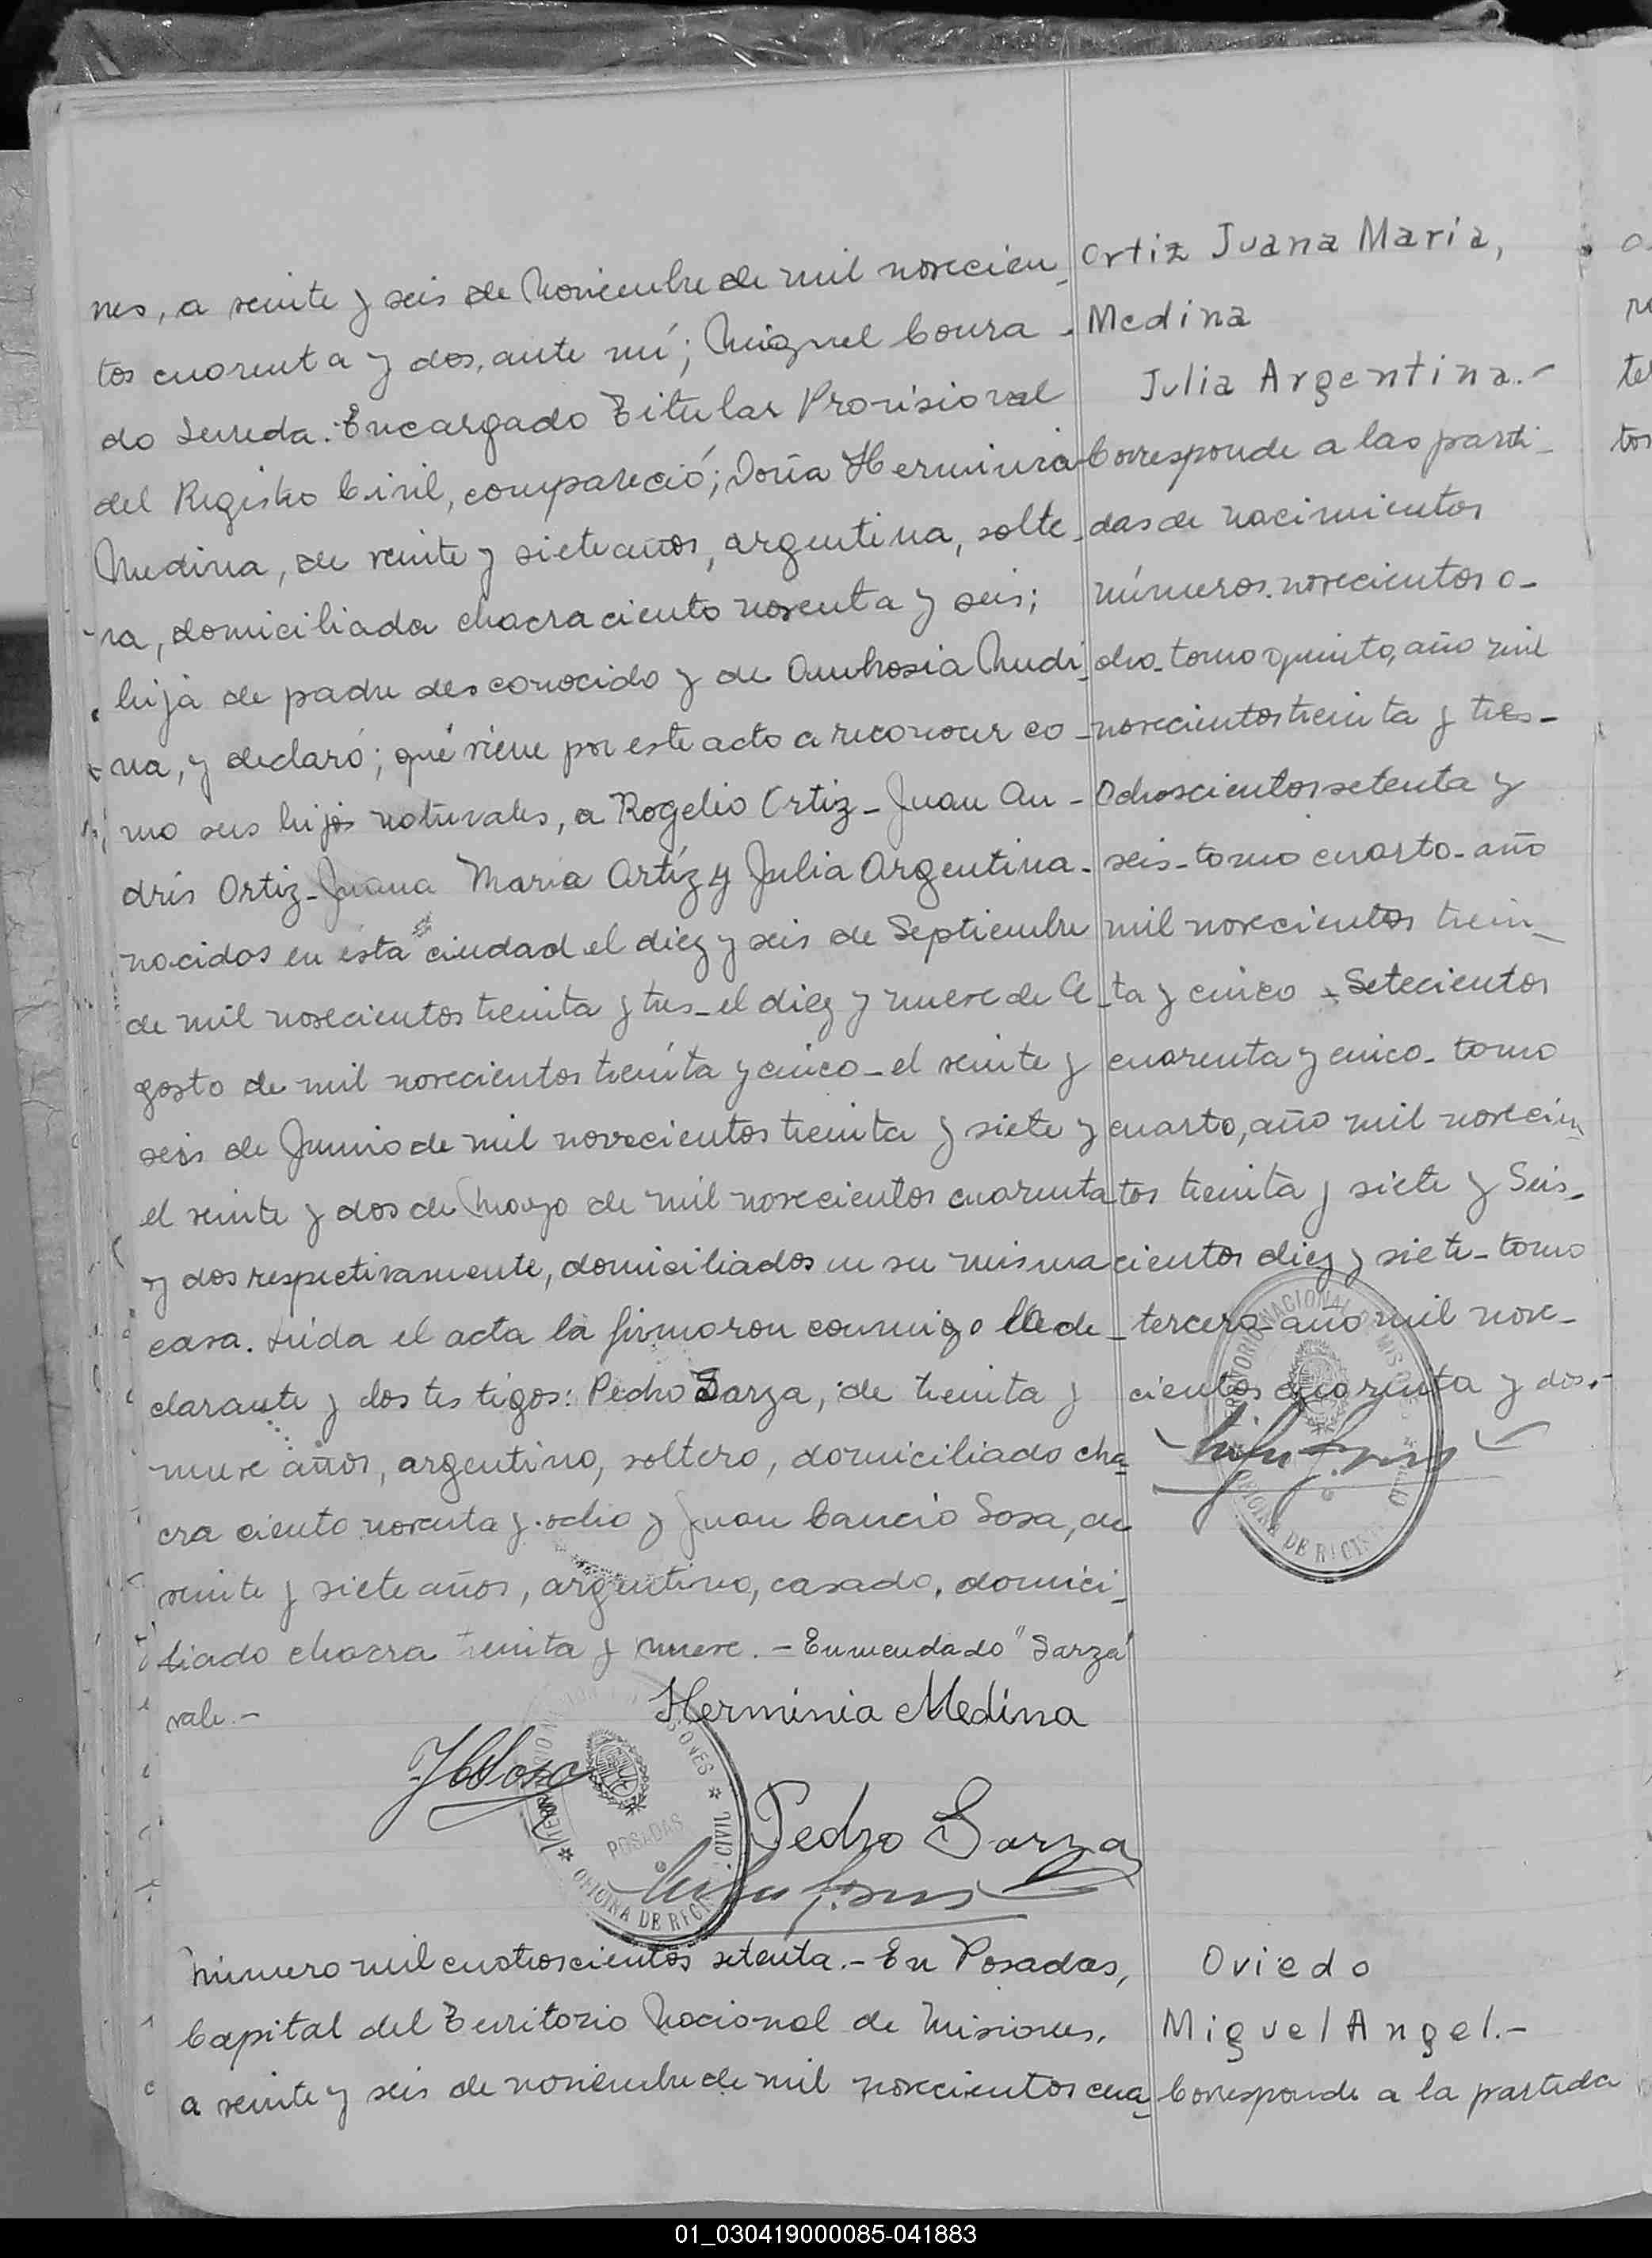 nes, a veinte y seis de Noviembre de mil novecien-
tos cuarenta y dos, ante mí; Miguel Coura-
do Lereda. Encargado Titular Provisional
del Registro Civil, compareció; Doña Herminia
Medina, de veinte y siete años, argentina, solte-
ra, domiciliada chacra ciento noventa y seis;
hija de padre desconocido y de Ambrosia Medi-
na, y declaró; qué viene por este acto a reconocer co-
mo sus hijos naturales, a Rogelio Ortiz - Juan An-
drés Ortiz - Juana Maria Ortíz y Julia Argentina -
nacidos en ésta ciudad el diez y seis de Septiembre
de mil novecientos treinta y tres - el diez y nueve de A-
gosto de mil novecientos treinta y cinco - el veinte y
seis de Junio de mil novecientos treinta y siete y
el veinte y dos de Mayo de mil novecientos cuarenta
y dos respectivamente, domiciliados en su misma
casa. Leida el acta la firmaron conmigo la de-
clarante y dos testigos: Pedro Sarza, de treinta y
nueve años, argentino, soltero, domiciliado cha-
cra ciento noventa y ocho y Juan Cancio Sosa, de
veinte y siete años, argentino, casado, domici-
liado chacra treinta y nueve. - Enmendado "Sarza"
vale. -
Ortiz Juana Maria,
Medina
Julia Argentina. -
Corresponde a las parti-
das de nacimientos
números. novecientos o-
cho - tomo quinto, año mil
novecientos treinta y tres -
Ochoscientos setenta y
seis - tomo cuarto - año
mil novecientos trein-
ta y cinco - Setecientos
cuarenta y cinco - tomo
cuarto, año mil novecien
tos treinta y siete y Seis-
cientos diez y siete - tomo
tercero - año mil nove-
cientos cuarenta y dos. -
Herminia Medina
JCSosa
POSADAS
OFICINA DE REG. CIVIL
Pedro Sarza
Número mil cuatroscientos setenta. - En Posadas,
Capital del Territorio Nacional de Misiones,
a veinte y seis de noviembre de mil novecientos cua-
Oviedo
Miguel Angel. -
Corresponde a la partida
01_030419000085-041883